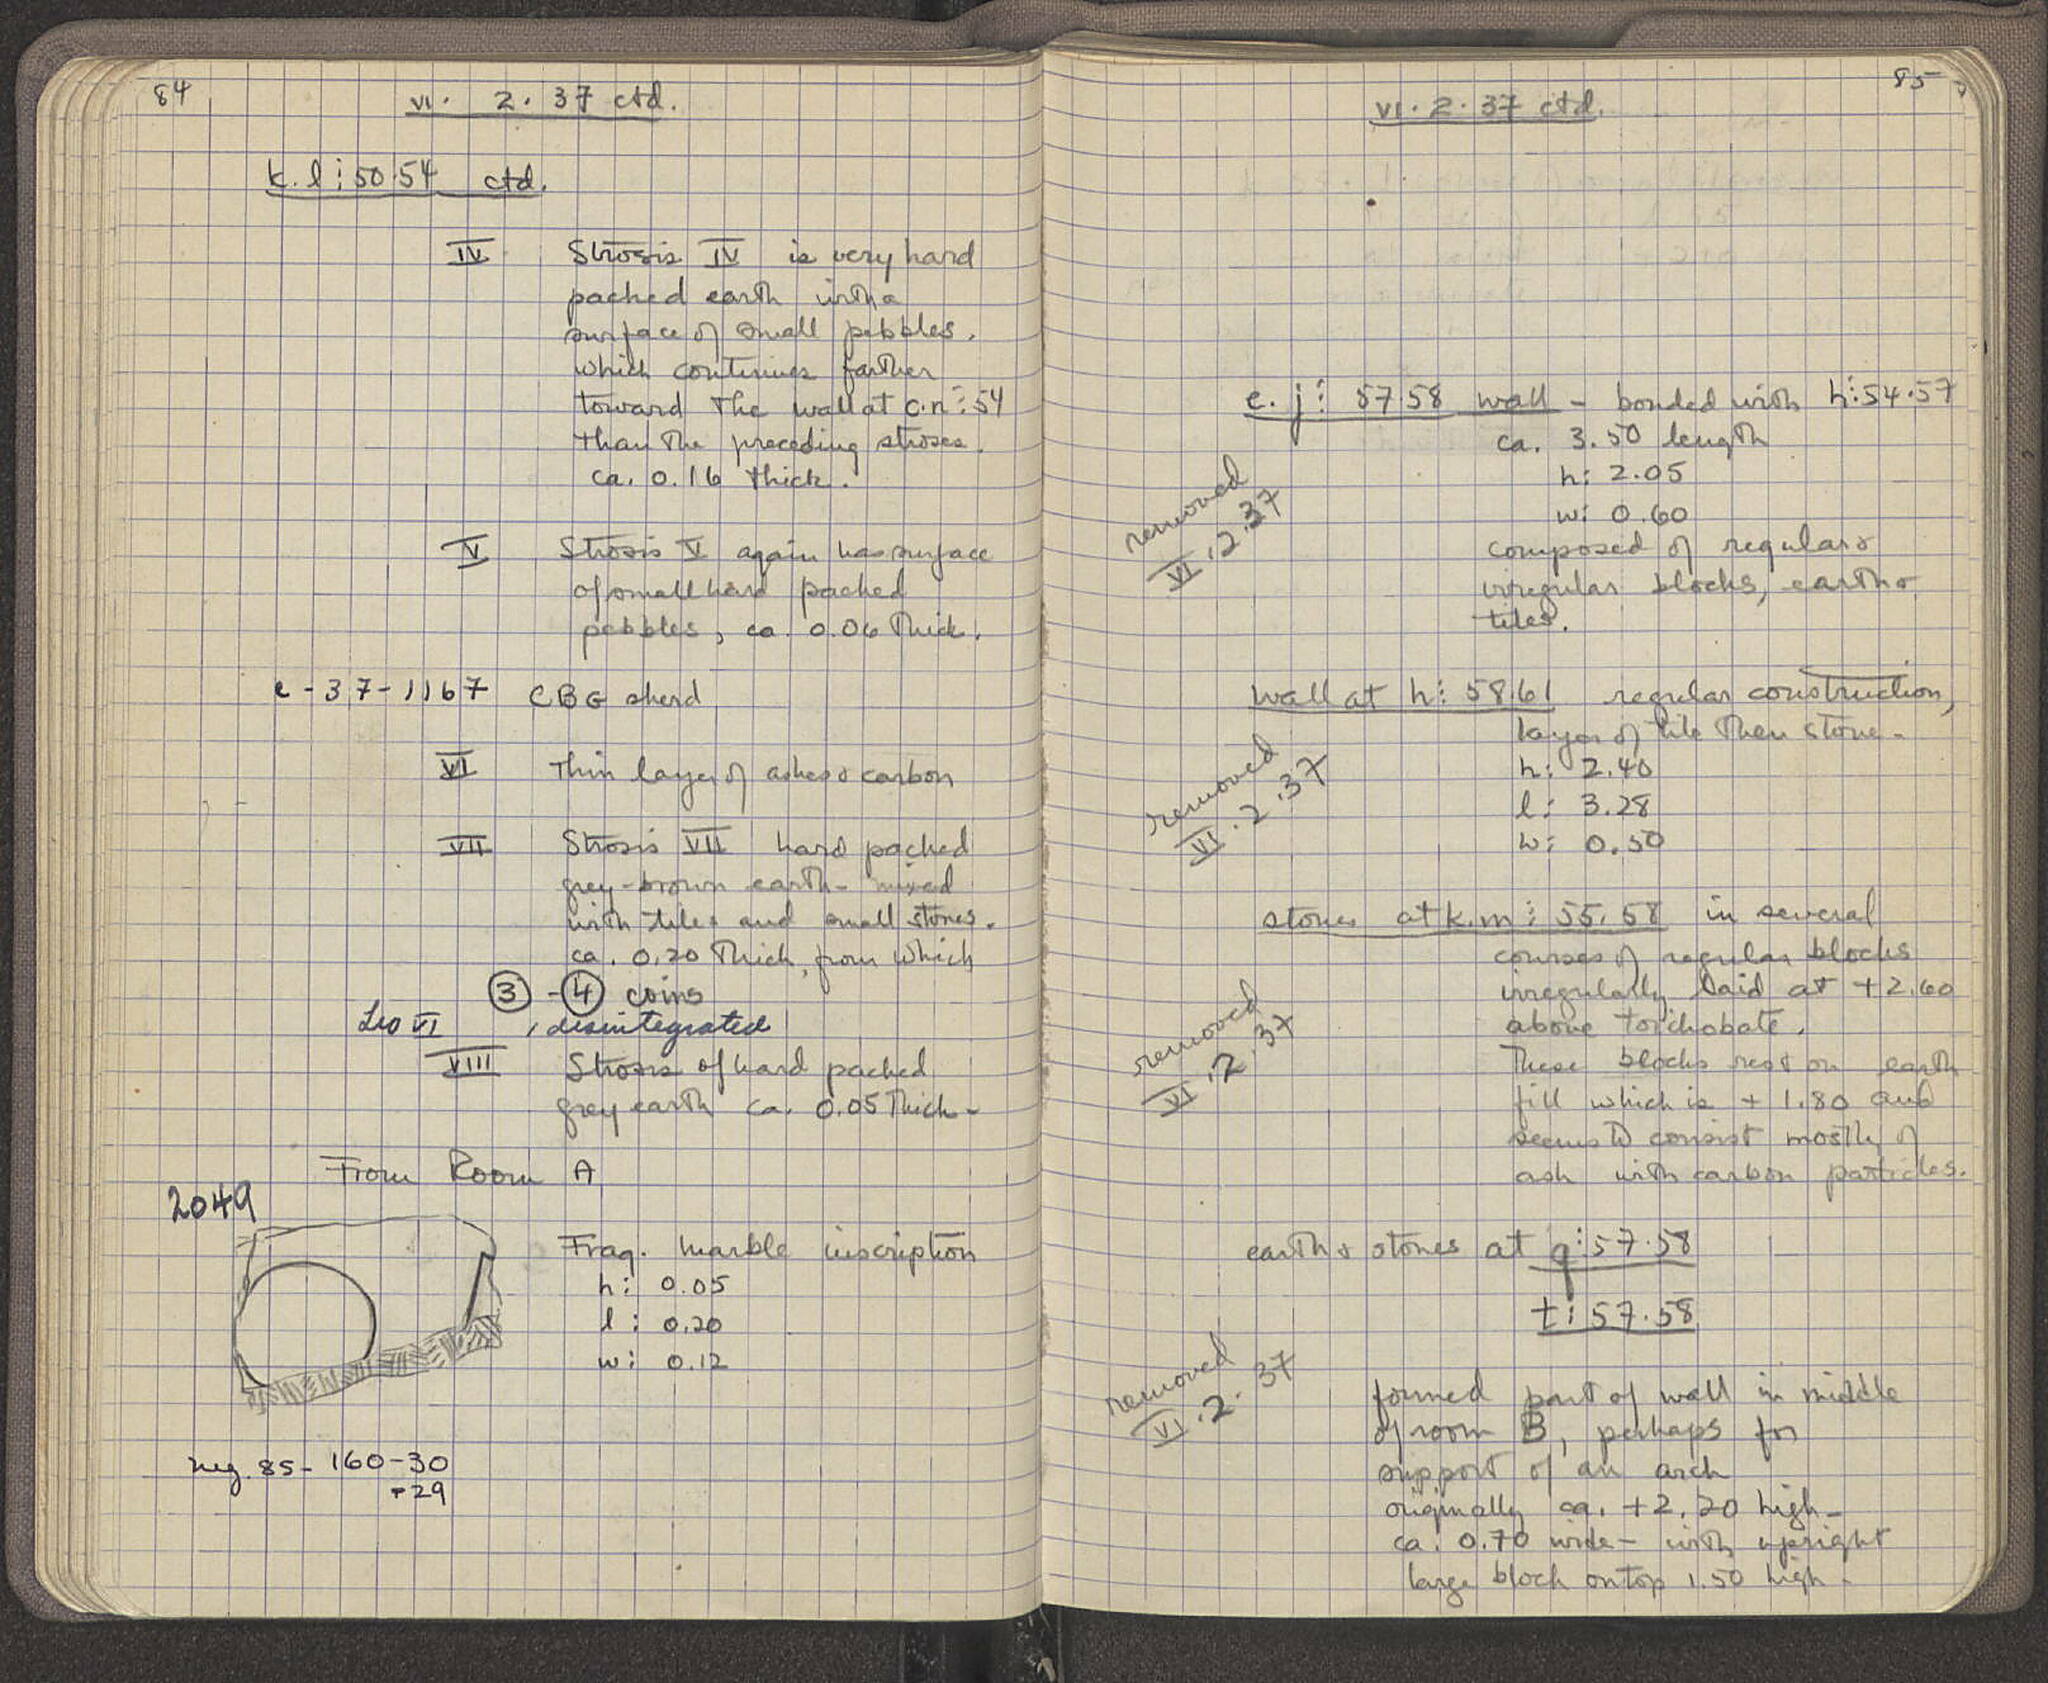 84
VI. 2. 37 ctd.
k.l:50.54 ctd.
IV Strosis IV is very hard
packed earth with a
surface of small pebbles.
which continues farther
toward the wall at c.n:54
than the preceding stroses.
ca. 0.16 thick.
V Strosis V again has surface
of small hard packed
pebbles, ca. 0.06 thick.
c-37-1167 CBG sherd
VI Thin layer of ashes & carbon
VII Strosis VII hard packed
grey-brown earth - mixed
with tiles and small stones.
ca. 0.20 thick, from which
3 - 4 coins
Leo VI , disintegrated
VIII Strosis of hard packed
grey earth ca. 0.05 thick -
From Room A
2049
Frag. marble inscription
h: 0.05
l: 0.20
w: 0.12
neg. 85-160-30
-29
85
VI. 2. 37 ctd.
e.j: 57.58 wall - bonded with h:54.57
ca. 3.50 length
h: 2.05
w: 0.60
removed
VI.2.37
composed of regular &
irregular blocks, earth &
tiles.
wall at h: 58.61 regular construction,
layer of tile then stone -
h: 2.40
l: 3.28
w: 0.50
removed
VI.2.37
stones at k.m: 55.58 in several
courses of regular blocks
irregularly laid at +2.60
above toichobate.
removed
VI.2.37
These blocks rest on earth
fill which is + 1.80 and
seems to consist mostly of
ash with carbon particles.
earth & stones at q:57.58
t:57.58
removed
VI.2.37
formed part of wall in middle
of room B, perhaps for
support of an arch
originally ca. +2.20 high -
ca. 0.70 wide - with upright
large block on top 1.50 high -